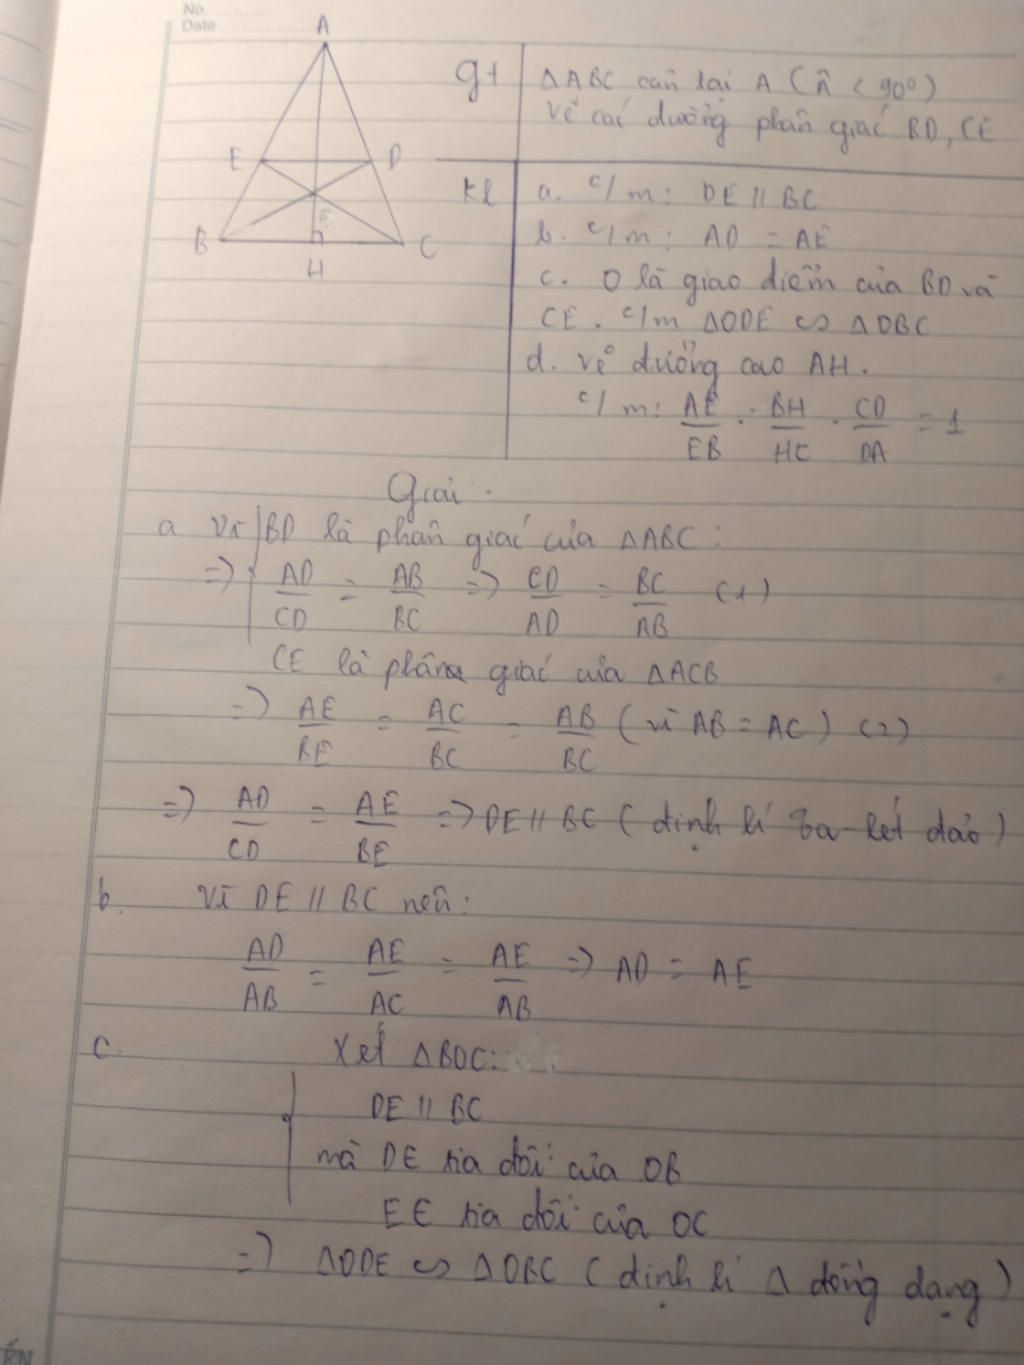 No.
Date
A
E
D
B
C
H
gt
ΔABC cân tại A (Â < 90°)
Vẽ các đường phân giác BD, CE
kl
a. c/m: DE // BC
b. c/m: AD = AE
c. O là giao điểm của BD và
CE. c/m ΔODE ∽ ΔOBC
d. vẽ đường cao AH.
c/m: AE/EB . BH/HC . CD/DA = 1
Giải
a Vì BD là phân giác của ΔABC:
=> AD/CD = AB/BC => CD/AD = BC/AB (1)
CE là phân giác của ΔACB
=> AE/BE = AC/BC = AB/BC (vì AB = AC) (2)
=> AD/CD = AE/BE => DE // BC (định lí Ta-lét đảo)
b. Vì DE // BC nên:
AD/AB = AE/AC = AE/AB => AD = AE
c. Xét ΔBOC:
DE // BC
mà DE tia đối của OB
EE tia đối của OC
=> ΔODE ∽ ΔOBC (định lí Δ đồng dạng)